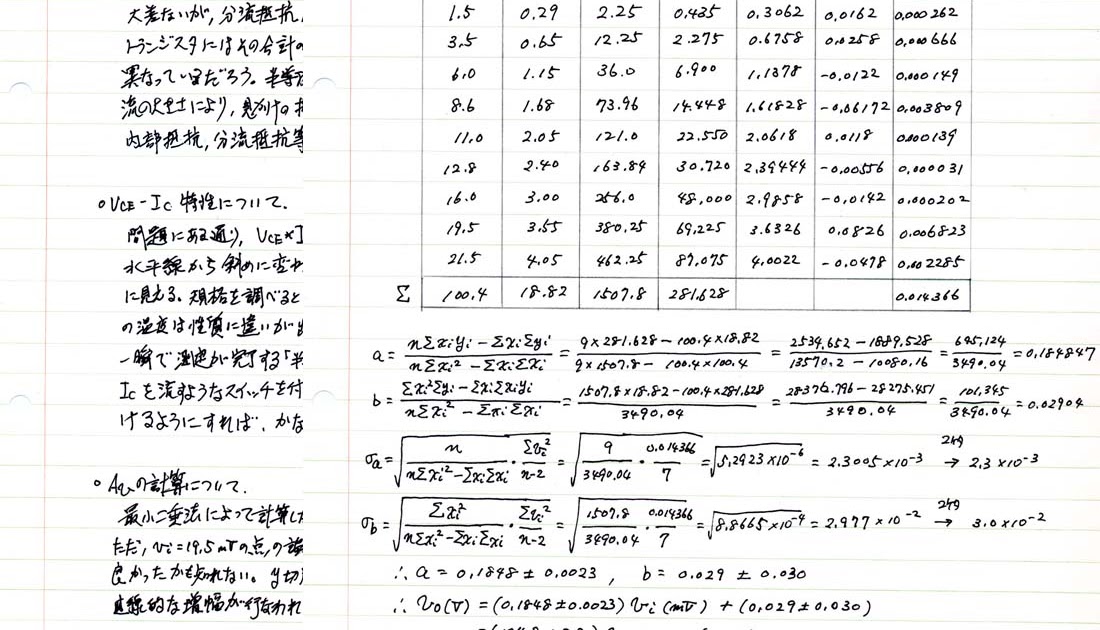 大差ないが, 分流抵抗,
トランジスタにはその合計の
異なっているだろう。半導
流の大きさにより, 見かけの
内部抵抗, 分流抵抗等
○ VCE - IC 特性について.
問題にある通り, VCE*I
水平線から斜めに変わ
に見える。規格を調べると
の温度は性質に違いが
一瞬で測定が完了する「半
ICを流すようなスイッチを付
けるようにすれば, かな
○ Avの計算について.
最小二乗法によって計算した
ただ, vi=19.5mVの点,の
良かったかも知れない。y切
直線的な増幅が行なわれ
1.5 0.29 2.25 0.435 0.3062 0.0162 0.000262
3.5 0.65 12.25 2.275 0.6758 0.0258 0.000666
6.0 1.15 36.0 6.900 1.1378 -0.0122 0.000149
8.6 1.68 73.96 14.448 1.61828 -0.06172 0.003809
11.0 2.05 121.0 22.550 2.0618 0.0118 0.000139
12.8 2.40 163.84 30.720 2.39444 -0.00556 0.000031
16.0 3.00 256.0 48.000 2.9858 -0.0142 0.000202
19.5 3.55 380.25 69.225 3.6326 0.0826 0.006823
21.5 4.05 462.25 87.075 4.0022 -0.0478 0.002285
Σ 100.4 18.82 1507.8 281.628 0.014366
a = (nΣxiyi - ΣxiΣyi)/(nΣxi² - ΣxiΣxi) = (9×281.628 - 100.4×18.82)/(9×1507.8 - 100.4×100.4) = (2534.652 - 1889.528)/(13570.2 - 10080.16) = 645.124/3490.04 = 0.184847
b = (Σxi²Σyi - ΣxiΣxiyi)/(nΣxi² - ΣxiΣxi) = (1507.8×18.82 - 100.4×281.628)/3490.04 = (28376.796 - 28275.451)/3490.04 = 101.345/3490.04 = 0.02904
σa = √(n/(nΣxi² - ΣxiΣxi) · Σvi²/(n-2)) = √(9/3490.04 · 0.014366/7) = √(5.2923×10⁻⁶) = 2.3005×10⁻³ 2ケタ→ 2.3×10⁻³
σb = √(Σxi²/(nΣxi² - ΣxiΣxi) · Σvi²/(n-2)) = √(1507.8/3490.04 · 0.014366/7) = √(8.8665×10⁻⁴) = 2.977×10⁻² 2ケタ→ 3.0×10⁻²
∴ a = 0.1848 ± 0.0023 , b = 0.029 ± 0.030
∴ vo(V) = (0.1848±0.0023) vi(mV) + (0.029±0.030)